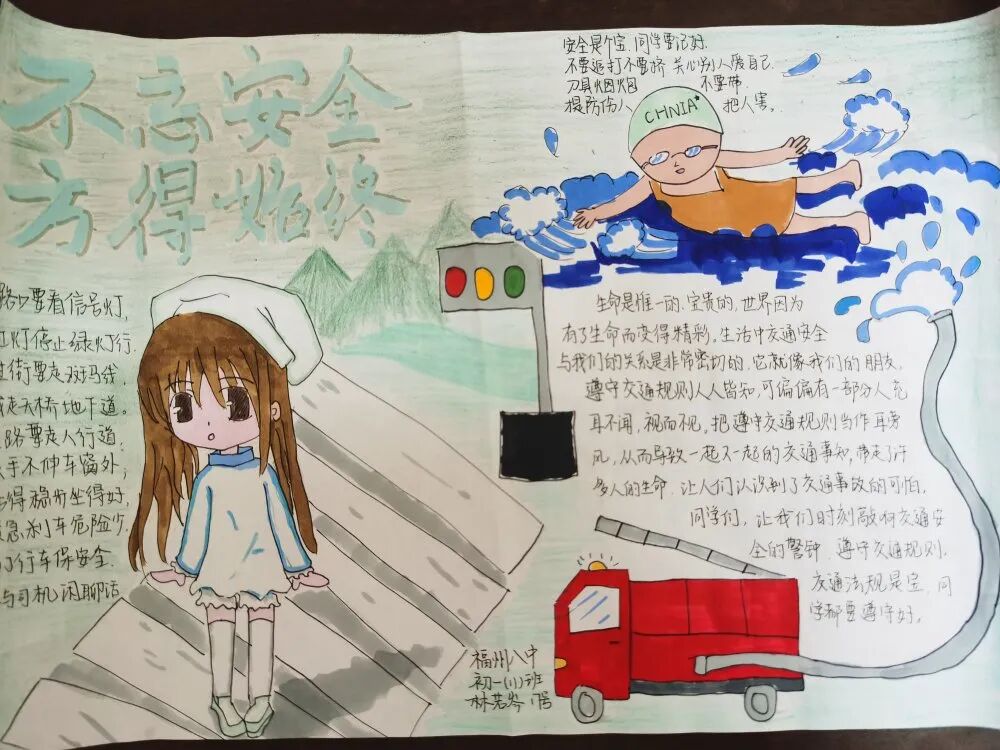 不忘安全
方得始终
安全是个宝,同学要记好.
不要追打不要挤 关心别人爱自己.
刀具烟烟 不要带
提防伤人 把人害。
CHNIA
路口要看信号灯,
红灯停止绿灯行.
过街要走斑马线,
走天桥地下道。
路要走人行道,
手不伸车窗外;
得稳听坐得好,
急刹车危险少
行车保安全.
与司机闲聊话
生命是惟一的、宝贵的,世界因为
有了生命而变得精彩,生活中交通安全
与我们的关系是非常密切的.它就像我们的朋友.
遵守交通规则人人皆知,可偏偏有一部分人充
耳不闻,视而不见,把遵守交通规则当作耳旁
风,从而导致一起又一起的交通事知,带走了许
多人的生命.让人们认识到了交通事故的可怕.
同学们,让我们时刻敲响交通安
全的警钟.遵守交通规则.
交通法规是宝,同
学都要遵守好。
福州八中
初一(11)班
林若岑 17号